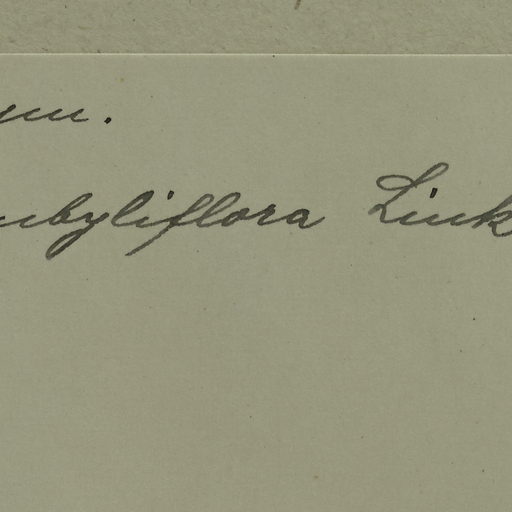 ynn.
ubyliflora Link